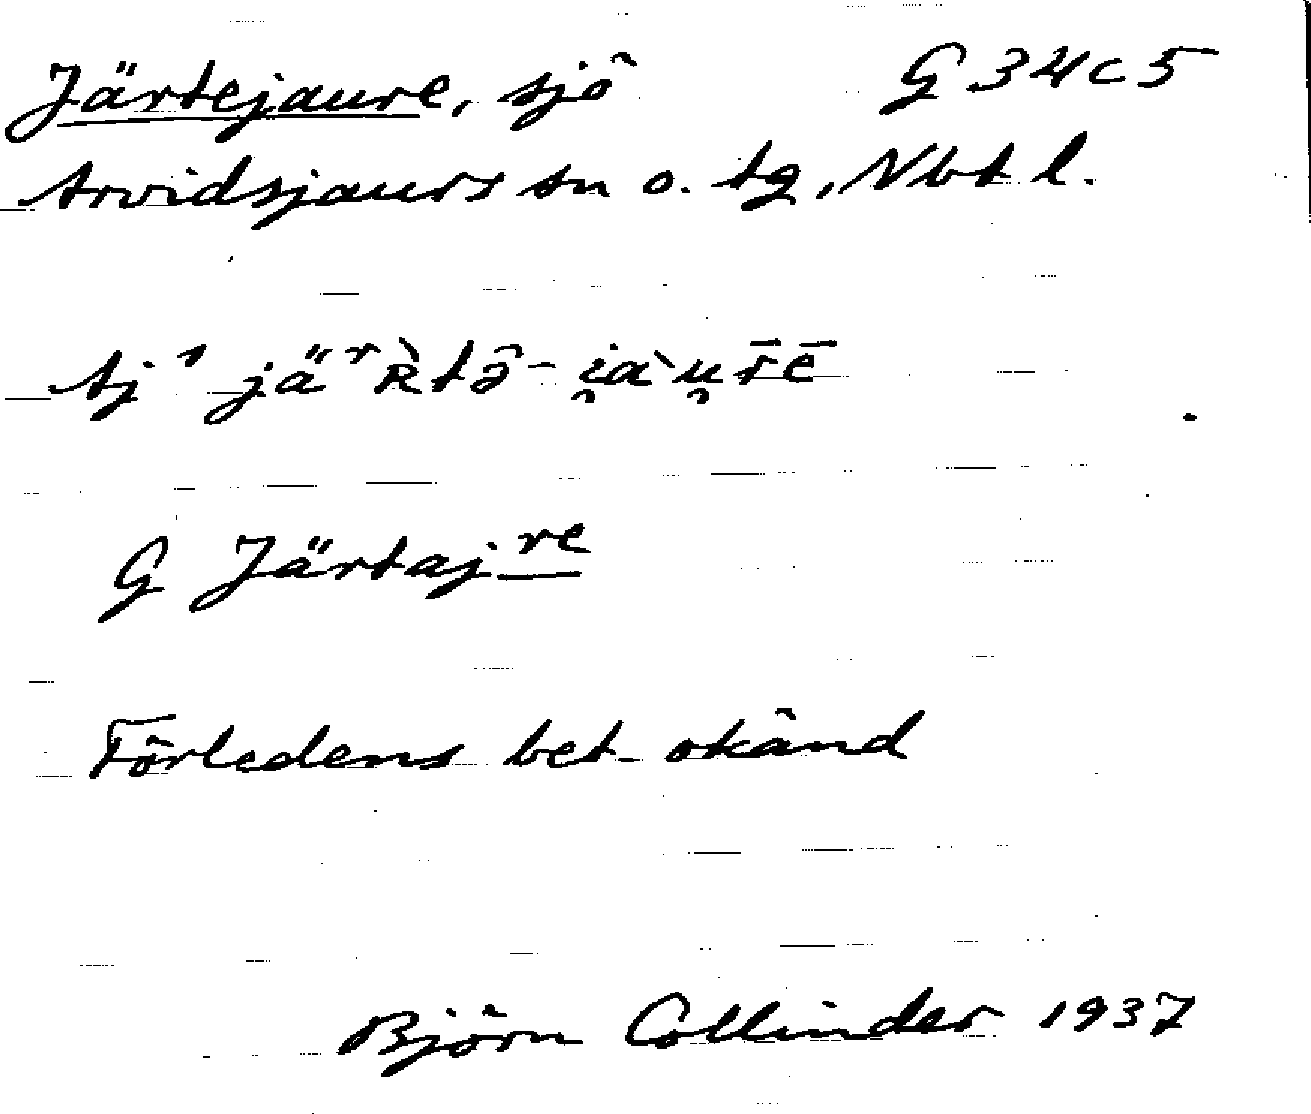 Järtejaure, sjö G 34c5
Arvidsjaurs sn o. tg, Nbt l.
Aj ¹ jäʳʀ̀tə̑-i̯àu̯r̄ē
G Järtaj.re
Förledens bet. okänd
Björn Collinder 1937